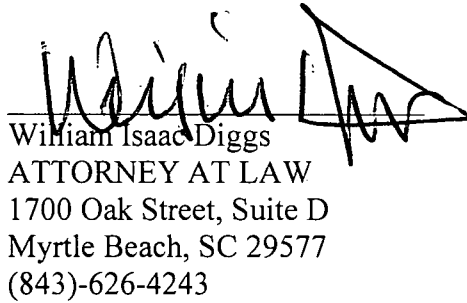 William Isaac Diggs
ATTORNEY AT LAW
1700 Oak Street, Suite D
Myrtle Beach, SC 29577
(843)-626-4243